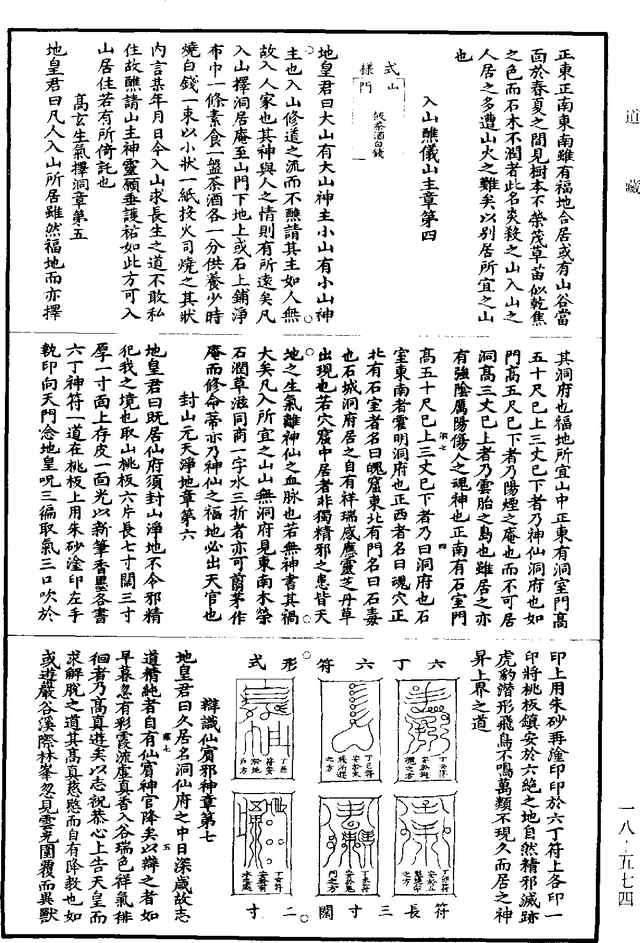 道藏
正東正南東南雖有福地合居或有山谷當
面於春夏之間見樹本不榮茂草苗似乾焦
之色而石木不潤者此名炎殺之山入山之
人居之多遭山火之難矣以别居所宜之山
也
入山醮儀山主章第四
式山
樣門
地皇君曰大山有大山神主小山有小山神
主也入山修道之流而不醮請其主如人無
故入人家也其神與人之情則有所遠矣凡
入山擇洞居庵至山門下地上或石上鋪淨
布巾一條素食一盤茶酒各一分供養少時
燒白錢一束以小狀一紙投火司燒之其狀
内言某年月日今入山求長生之道不敢私
住故醮請山主神靈願垂護祐如此方可入
山居住若有所倚託也
高玄生氣擇洞章第五
地皇君曰凡人入山所居雖然福地而亦擇
其洞府也福地所宜山中正東有洞室門高
五十尺已上三丈已下者乃神仙洞府也如
門高五尺已下者乃陽煙之庵也而不可居
洞高三丈已上者乃雲胎之島也雖居之亦
有強陰厲陽傷人之魂神也正南有石室門
高五十尺已上三丈已下者乃曰洞府也石
室東南者霍明洞府也正西者名曰魂穴正
北有石室者名曰魄窟東北有門名曰石毒
也石城洞府居之自有祥瑞感應靈芝丹草
出現也若穴窟中居者非獨精邪之患皆天
地之生氣離神仙之血脉也若無神書其禍
大矣凡入所宜之山山無洞府見東南木榮
石潤草滋同南一字水三折者亦可葺茅作
庵而修命蒂亦乃神仙之福地必出天官也
封山元天淨地章第六
地皇君曰既居仙府須封山淨地不令邪精
犯我之境也取山桃板六片長七寸闊三寸
厚一寸面上存皮一面光以新筆香墨各書
六丁神符一道在桃板上用朱砂塗印左手
執印向天門念地皇呪三徧取氣三口吹於
印上用朱砂再塗印印於六丁符上各印一
印將桃板鎮安於六絶之地自然精邪滅跡
虎豹潛形飛鳥不鳴萬類不現久而居之神
昇上界之道
六丁六符形式
符長三寸闊二寸
辯識仙賓邪神章第七
地皇君曰久居名洞仙府之中日深歲故志
道精純者自有仙賓神官降矣以辯之者如
早暮忽有彩霞流虚真香入谷瑞色祥氣徘
徊者乃高真遊矣以志祝恭心上告天皇而
求解脱之道其高真慈愍而自有降教也如
或遊巖谷溪際林峯忽見雲光圍覆而異獸
一八‧五七四